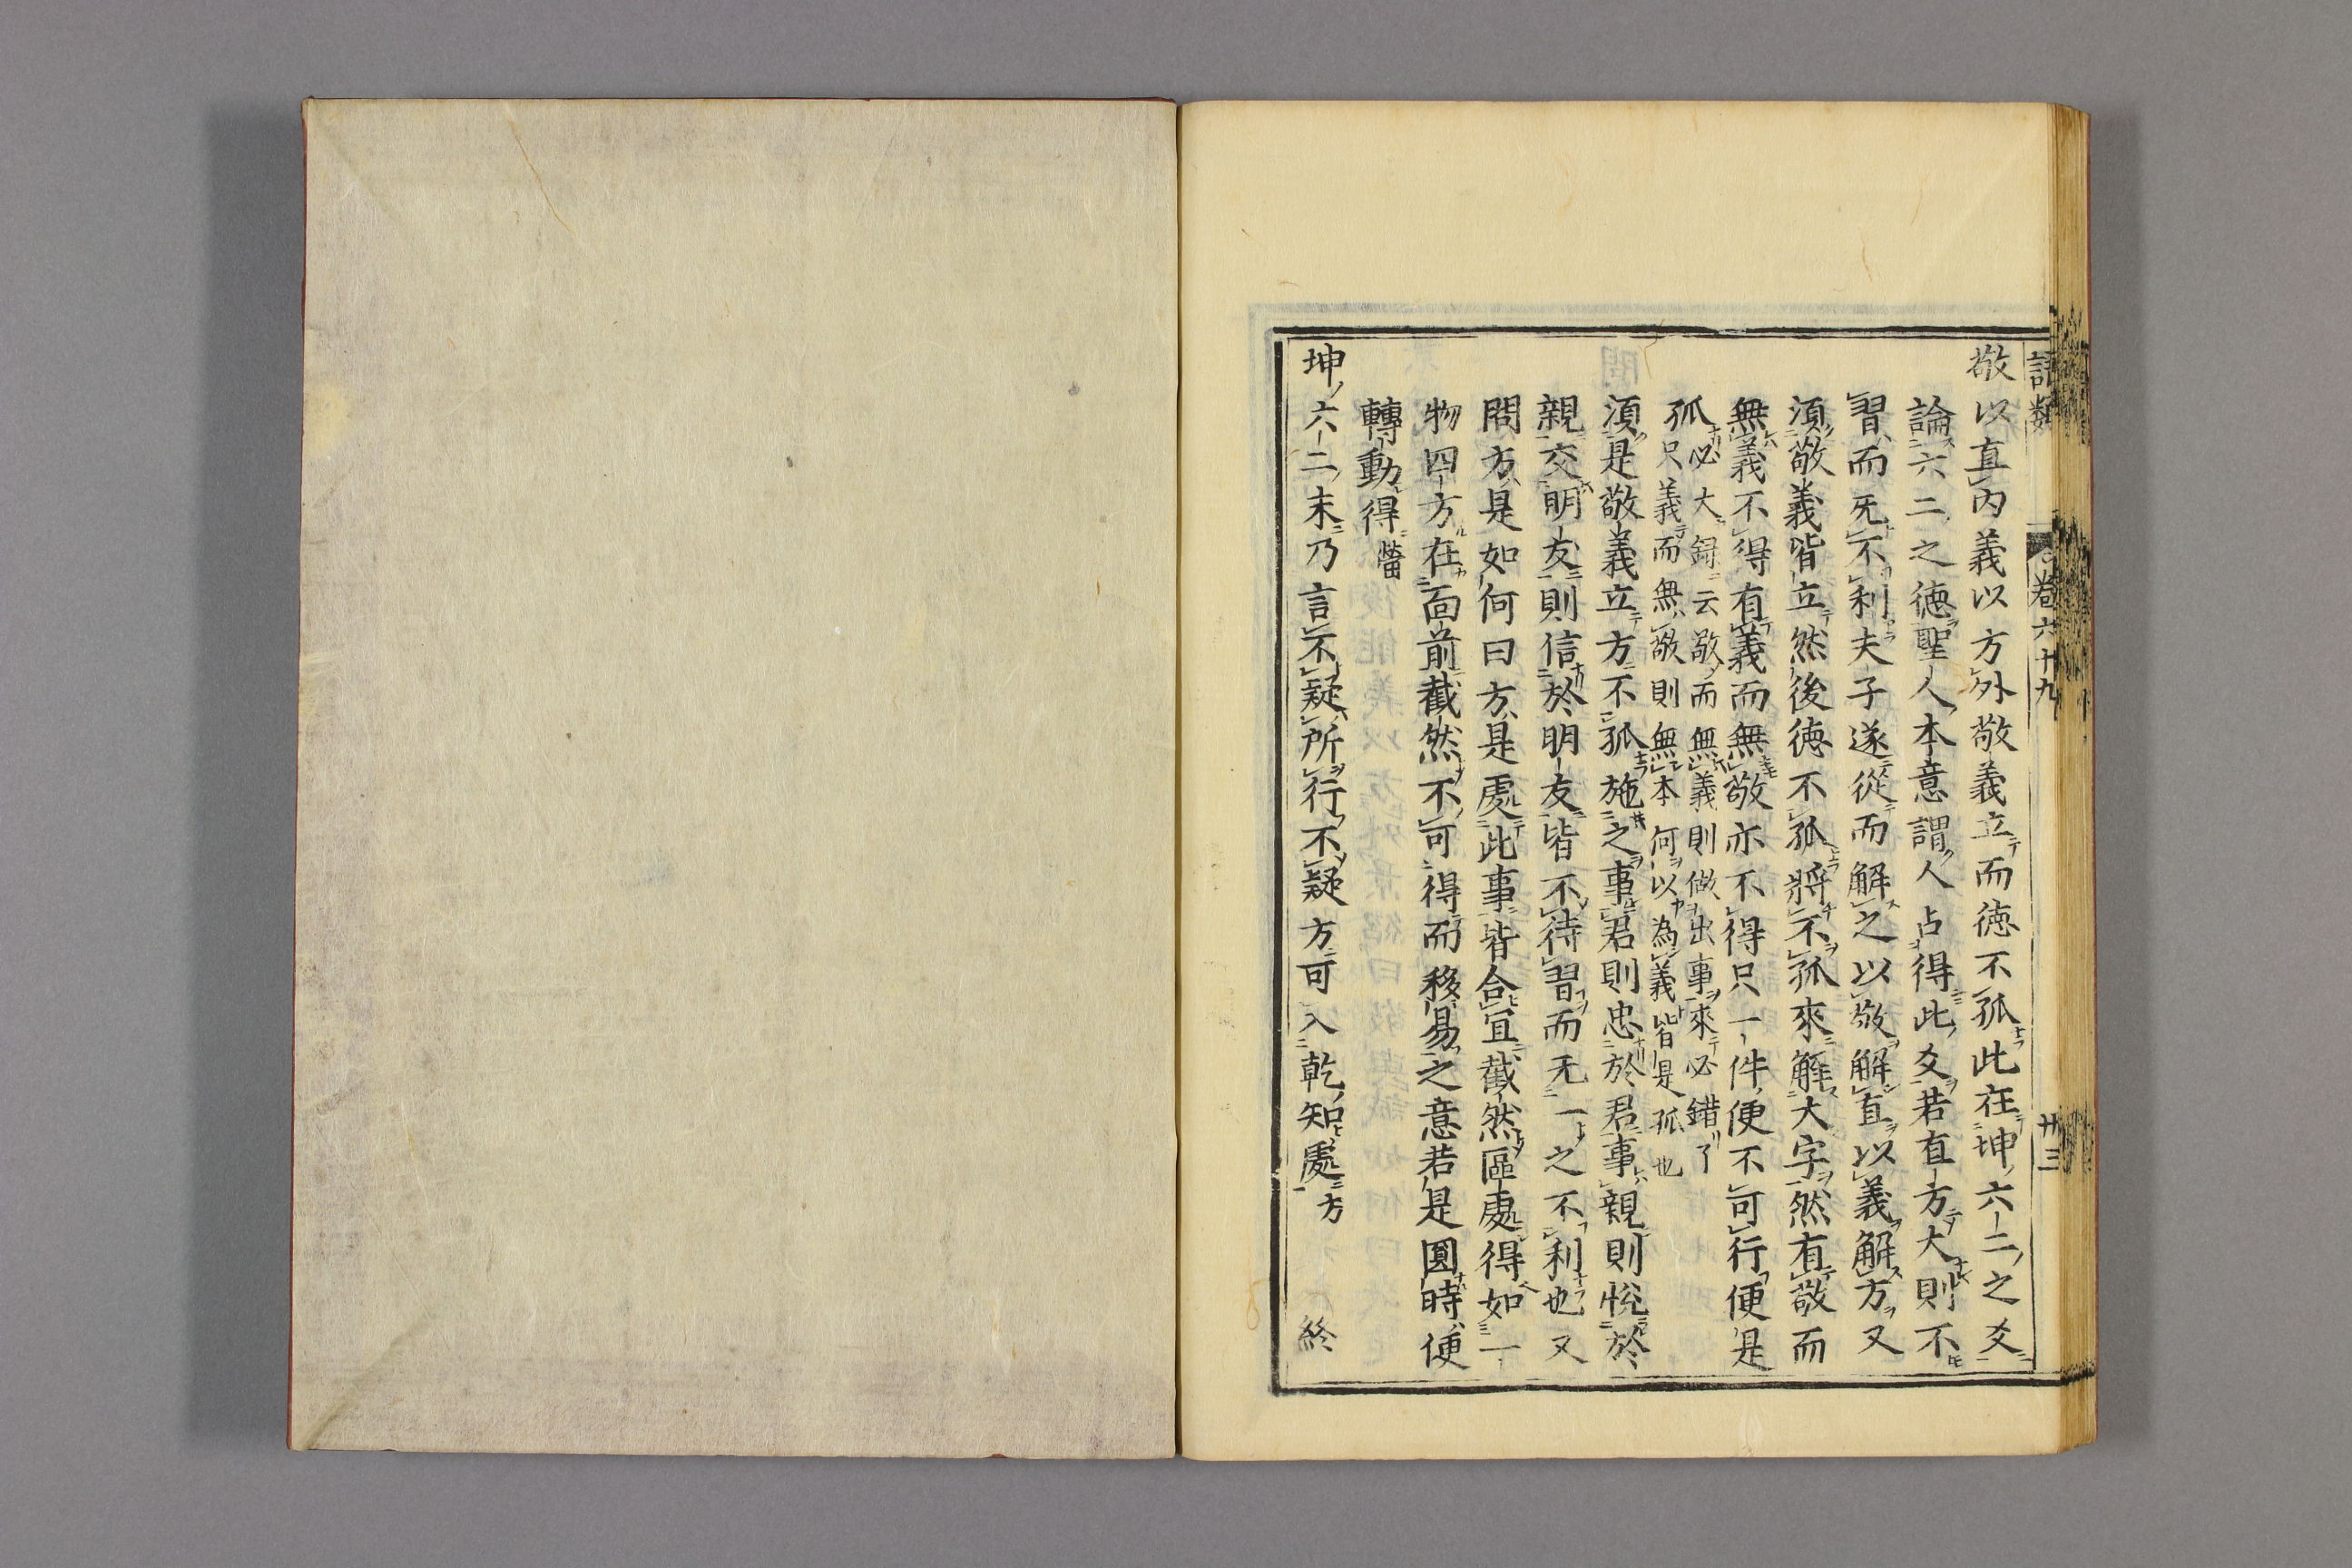 語類 卷六十九 廿三
敬以直内義以方外敬義立而德不孤此在坤六二之爻
論六二之德聖人本意謂人占得此爻若直方大則不
習而无不利夫子遂從而解之以敬解直以義解方又
須敬義皆立然後德不孤將不孤來解大字然有敬而
無義不得有義而無敬亦不得只一件便不可行便是
孤必大録云敬而無義則做出事來必錯了
只義而無敬則無本何以為義皆是孤也
須是敬義立方不孤施之事君則忠於君事親則悦於
親交朋友則信於朋友皆不待習而无一之不利也又
問方是如何曰方是處此事皆合宜截然區處得如一
物四方在面前截然不可得而移易之意若是圓時便
轉動得㽦
坤六二末乃言不疑所行不疑方可入乾知處方
終